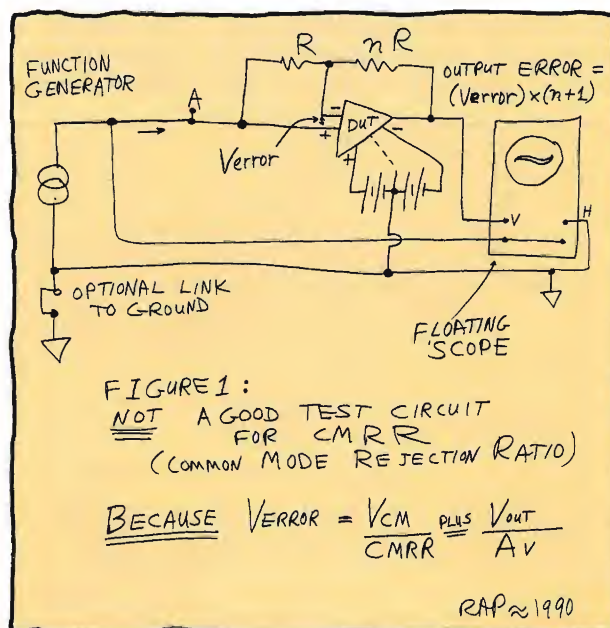 R
nR
FUNCTION
GENERATOR
OUTPUT ERROR =
(Verror)×(n+1)
A
-
+
DUT
-
+
Verror
V
H
OPTIONAL LINK
TO GROUND
FLOATING
SCOPE
FIGURE 1:
NOT A GOOD TEST CIRCUIT
FOR CMRR
(COMMON MODE REJECTION RATIO)
BECAUSE VERROR = VCM/CMRR PLUS Vout/Av
RAP ≈ 1990